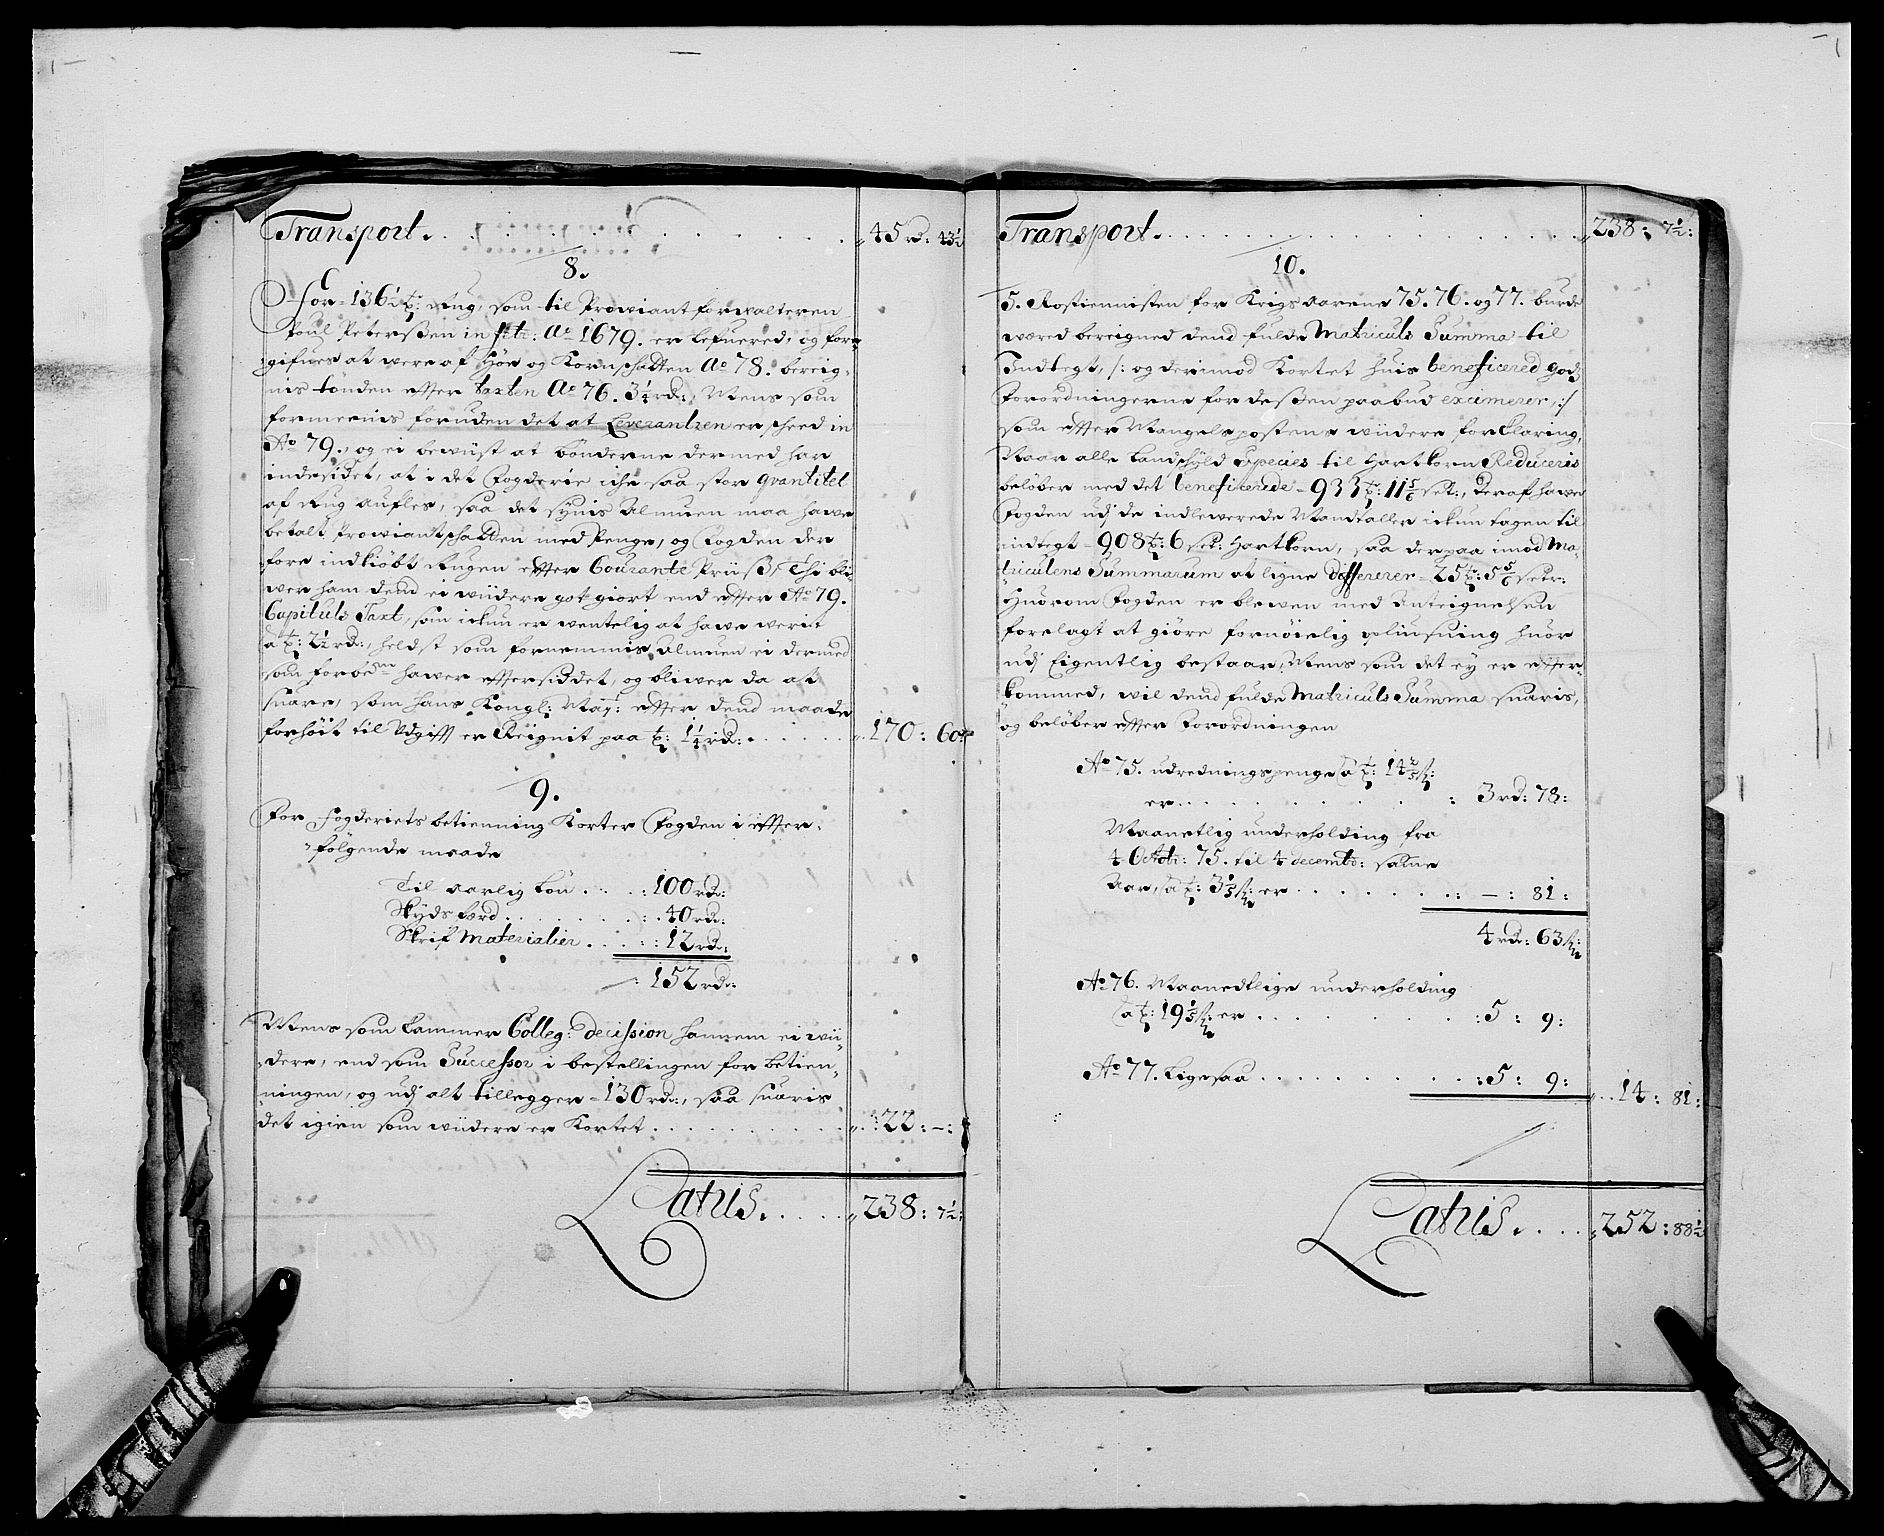 Transport. . . . . . . . . . . „45 rd: 43½
8.
For 136½ tr: Rug, som til Proviant forwalteren
Poul Peterßen in sitr: Ao 1679. er lefuered, og for-
gifues at were af Høe og Kornschatten Ao 78. bereig-
nis tønden effter taxten Ao 76. 3¼ rd:, Mens som
formeenis foruden det at Leverantzen er scheed in
Ao 79., og ei bewüst at bønderne dermed har
indesidet, at i det Fogderie iche saa stor qvantitet
af Rug aufles, saa det synis Almuen maa hawe
betalt Proviantschatten med Penge, og Fogden der
fore indkiøbt Rugen effter Courante Priiß, Thi bli-
wer ham dend ei wiidere got giort end effter Ao 79.
Capituls Taxt, som ickun er wentelig at hawe werit
a tr: 2½ rd:, heldst som fornemmis Almuen ei dermed
som forbem: hawer efftersiddet, og bliwer da at
suare, som hans Kongl: May: effter dend maade
forhøit til Udgifft er Reignit paa tr: 1¼ rd: . . . . . „170: 60
9.
For Fogderiets betienning Korter Fogden i effter-
følgende maade
Til Aarlig Løn . . . : 100 rd:
Skyds færd . . . . . . : 40 rd:
Skrif Materialier . . . . : 12 rd:
: 152 rd:
Mens som Cammer Colleg: Decission hannem ei wii-
dere, end som Successor i bestellingen for betien-
ningen, og udj alt tillegger - 130 rd:, saa suaris
det igien som wiidere er Kortet . . . . . . . . „: 22: -:
Latris. . . . . „238: 7½:
Transport. . . . . . . . . . . „238: 7½:
10.
5. Rostiennisten for Krigs Aarene 75. 76. og 77. burde
wæred bereigned dend fulde Matriculs Summa til
Indtegt, /: og derimod Kortet huis beneficered godz
Forordningerne for deßen paabud examerer, :/
som effter Mangels postens wiidere forklaring,
Naar alle Landschyld Species til Hartkorn Reduceris
beløber med det beneficerede - 933 tr: 11 5/6 setr:, Deraf hawer
Fogden udj de indlewerede Mandtaller ickun tagen til
indtegt - 908 tr: 6 setr: Hartkorn, saa derpaa imod Ma-
triculens Summarum at ligne differerer - 25 tr: 5 5/6 setr:
Huorom Fogden er blewen med Anteignelsen
forelagt at giøre fornøielig opliusning huor
udj Eigentlig bestaar, Mens som det ey er effter-
kommed, wil dend fulde Matriculs Summa suaris,
og beløber effter Forordningen
Ao 75. udrednings penge a tr: 14 2/5 ß:
er . . . . . . . . . . : 3 rd: 78:
Maanetlig underholding fra
4 Octobr: 75. til 4 decembr: samme
Aar, a tr: 3 1/5 ß: er . . . . . . . : - : 81:
4 rd: 63 ß:
Ao 76. Maanedtlige underholding
a tr: 19 1/5 ß: er . . . . . . . . . : 5: 9:
Ao 77. Ligesaa . . . . . . . . . . : 5: 9: „. . 14: 81:
Latris. . . . „252: 88½